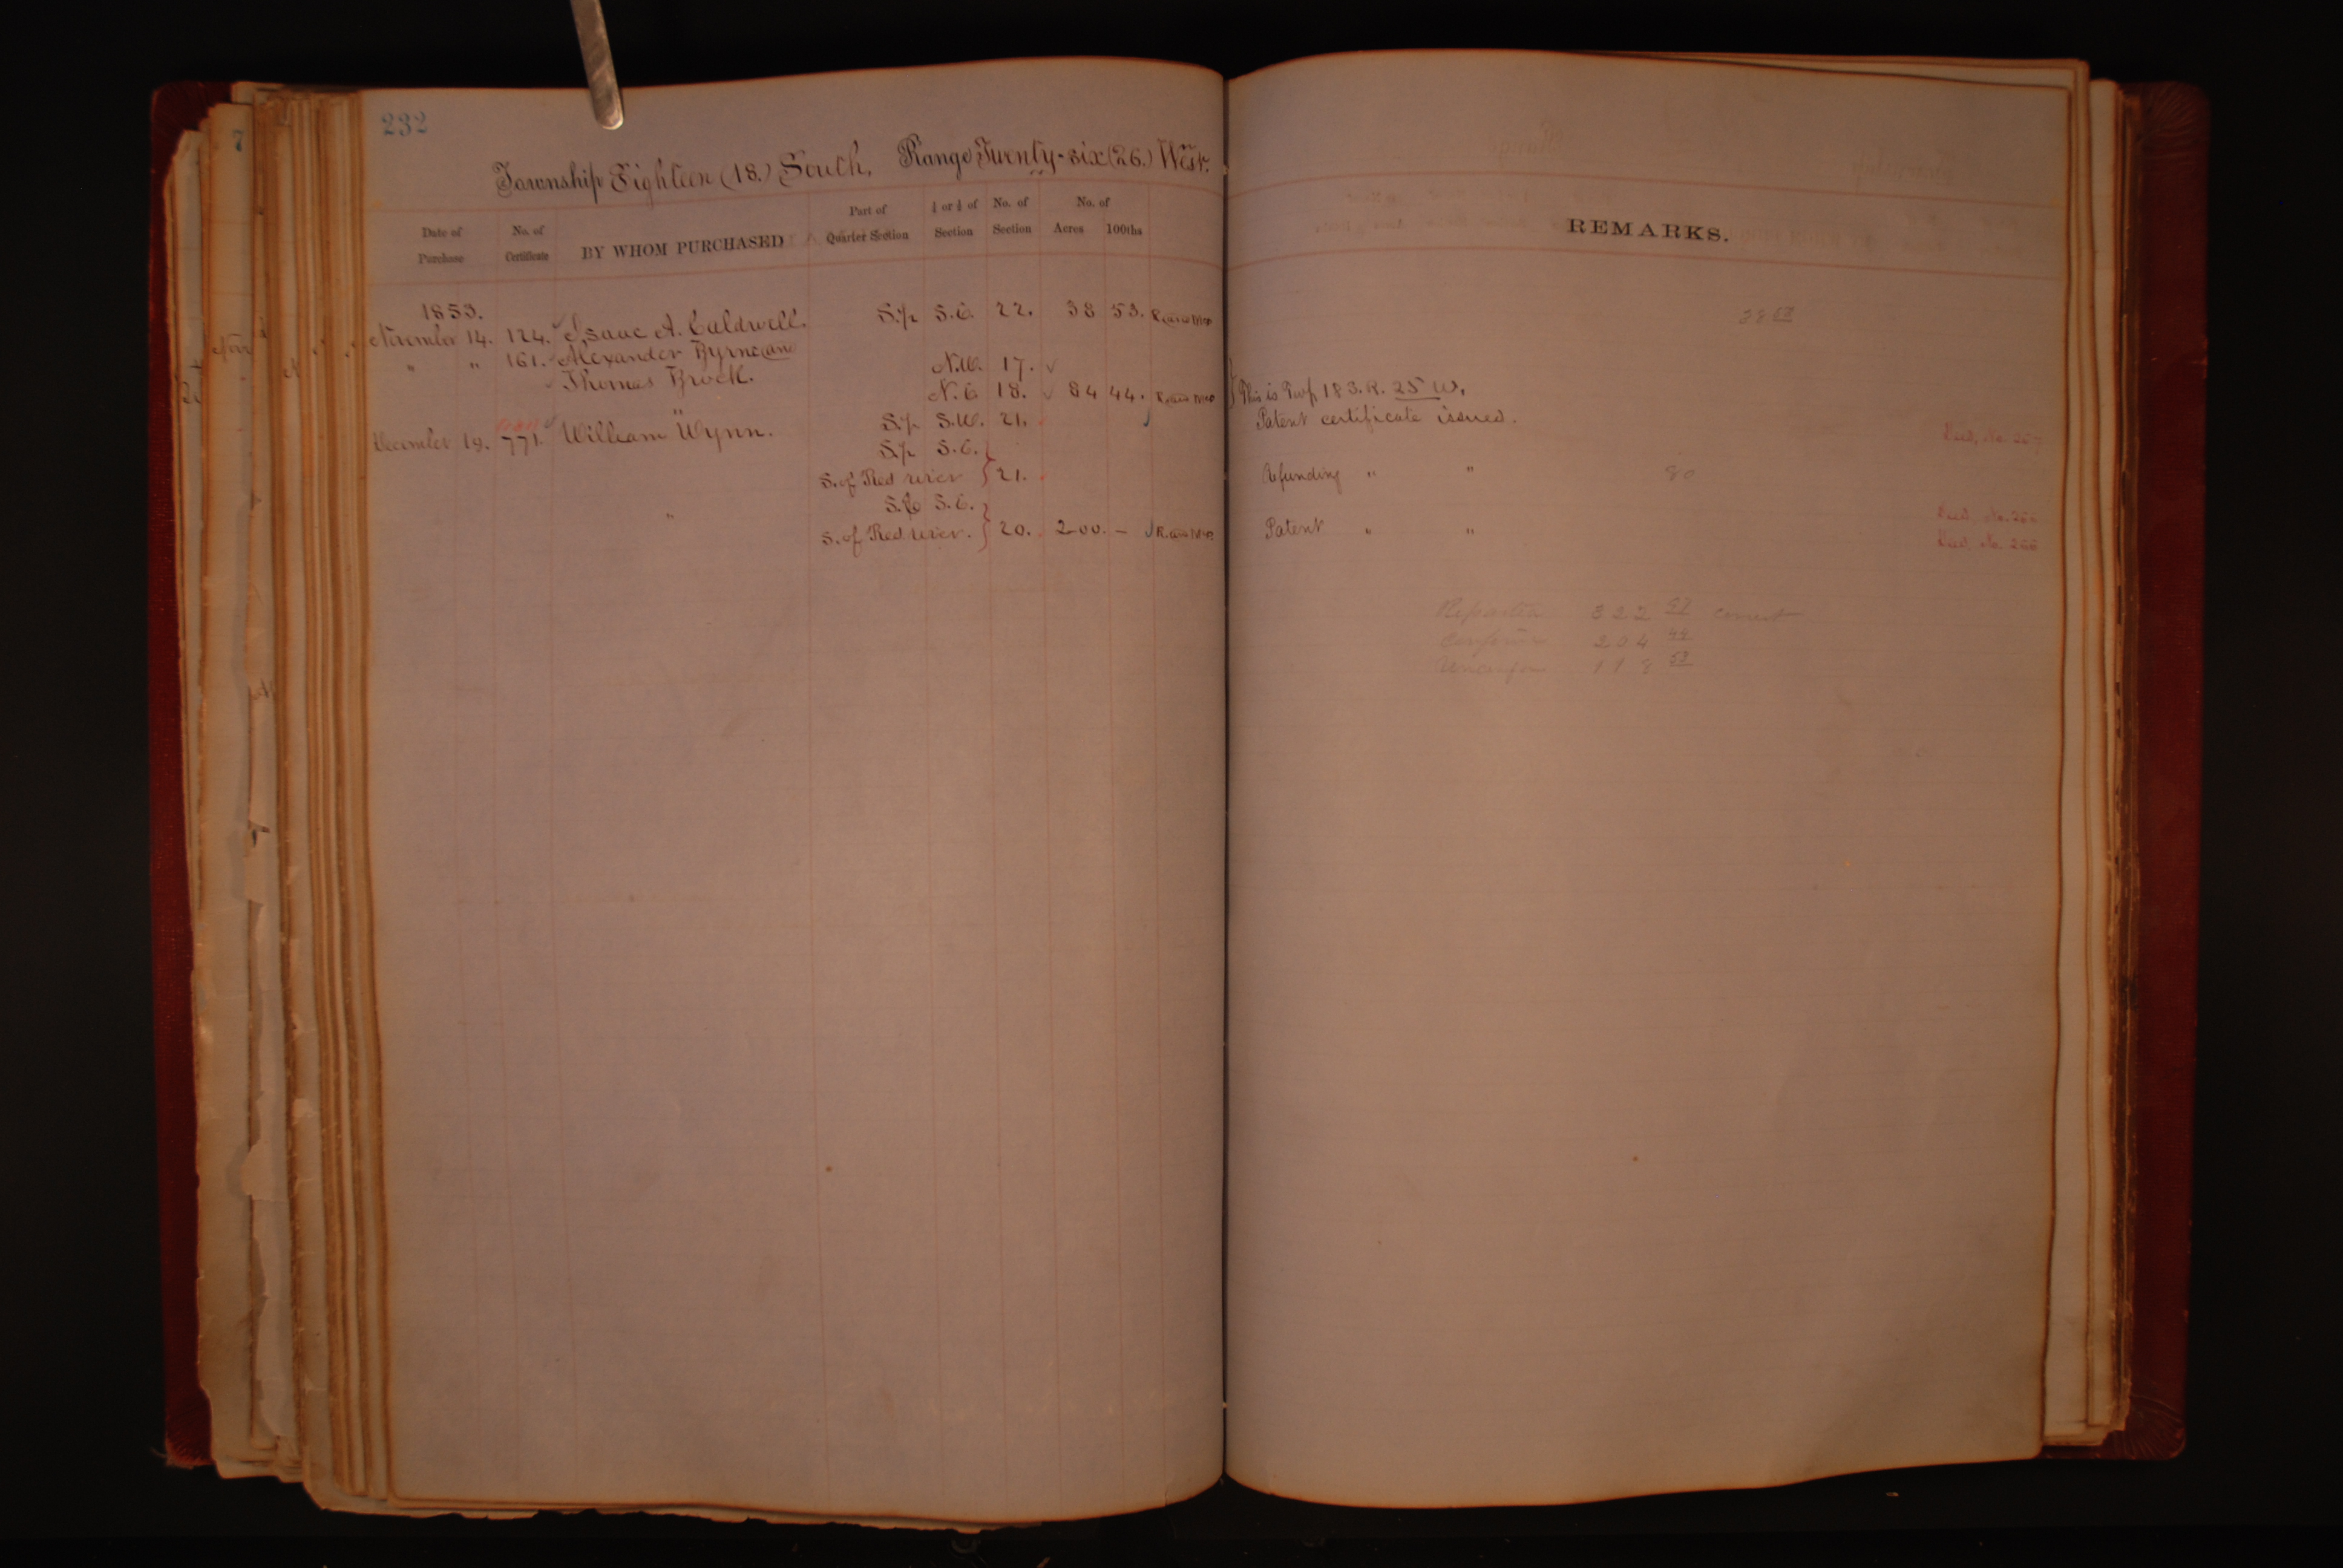 232
Township Eighteen (18.) South, Range Twenty-six (26.) West.
Date of Purchase No. of Certificate BY WHOM PURCHASED Part of Quarter Section ½ or ¼ of Section No. of Section No. of Acres 100ths
REMARKS.
1853.
November 14. 124. Isaac A. Caldwell. S.½ S.E. 22. 38 53.
" " 161. Alexander Byrne and N.W. 17.
Thomas Brock. N.E 18. 84 44. This is Twp 18 S. R. 25 W.
December 19. 771. William Wynn. S.½ S.W. 21. Patent certificate issued.
S.½ S.E.
S. of Red river 21. Refunding " " 80
S.½ S.E.
" S. of Red river. 20. 200. – Patent " "
322 97 correct
204 44
118 53